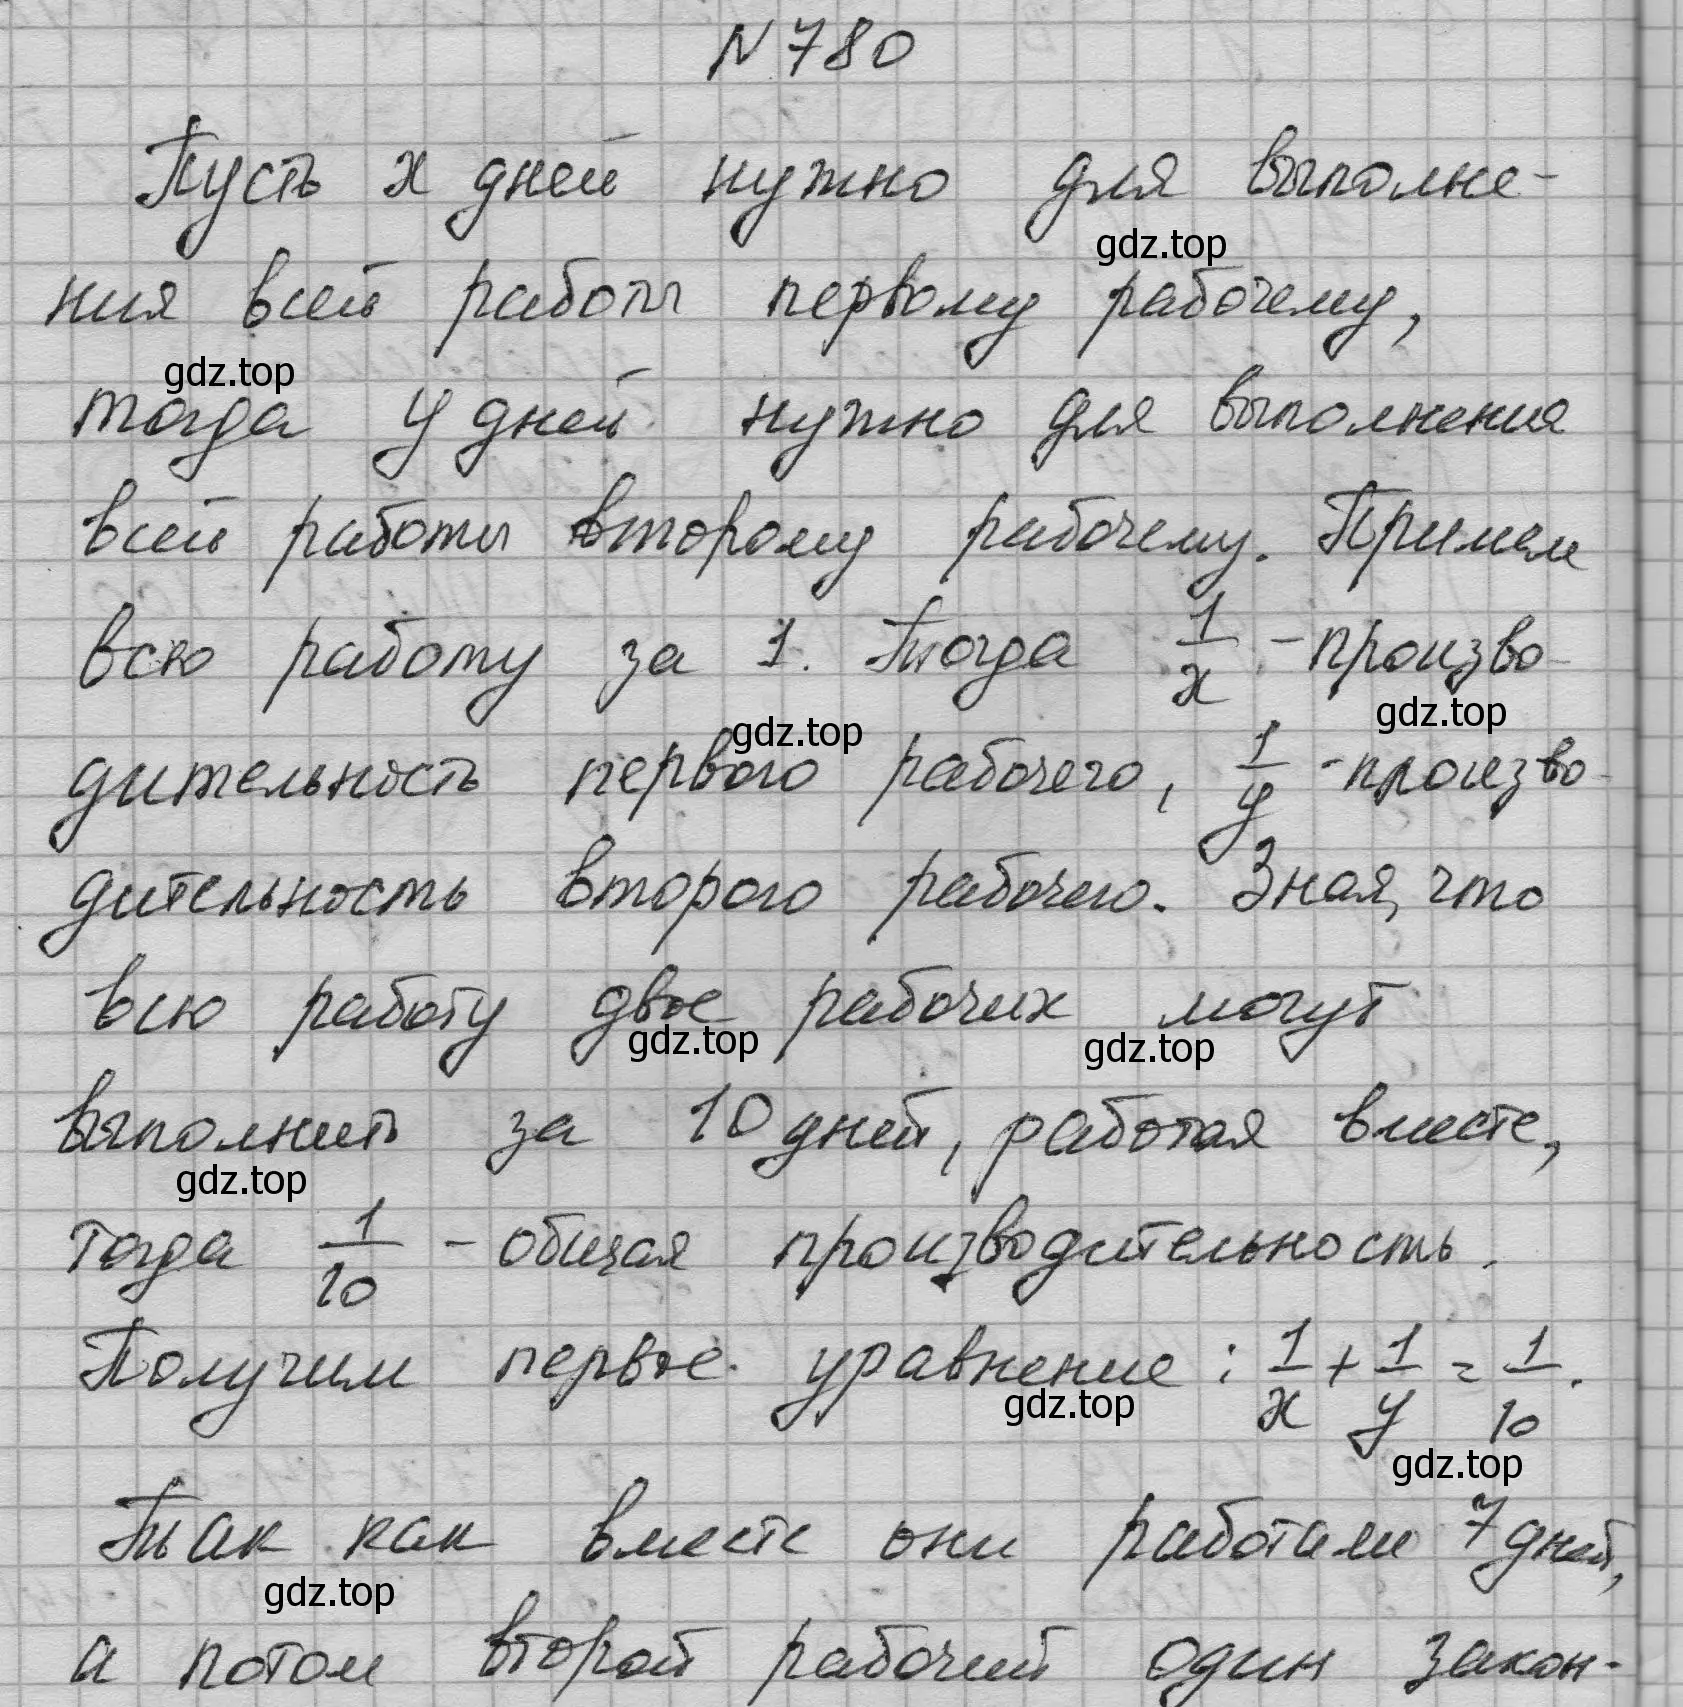 N 780
Пусть x дней нужно для выполне-
gdz.top
ния всей работы первому рабочему,
gdz.top
тогда y дней нужно для выполнения
всей работы второму рабочему. Примем
всю работу за 1. Тогда 1/x - произво-
gdz.top gdz.top
дительность первого рабочего, 1/y - произво-
дительность второго рабочего. Зная, что
всю работу двое рабочих могут
gdz.top gdz.top
выполнить за 10 дней, работая вместе,
gdz.top
тогда 1/10 - общая производительность.
Получим первое уравнение: 1/x + 1/y = 1/10.
gdz.top
gdz.top
Так как вместе они работали 7 дней,
gdz.top
а потом второй рабочий один закон-